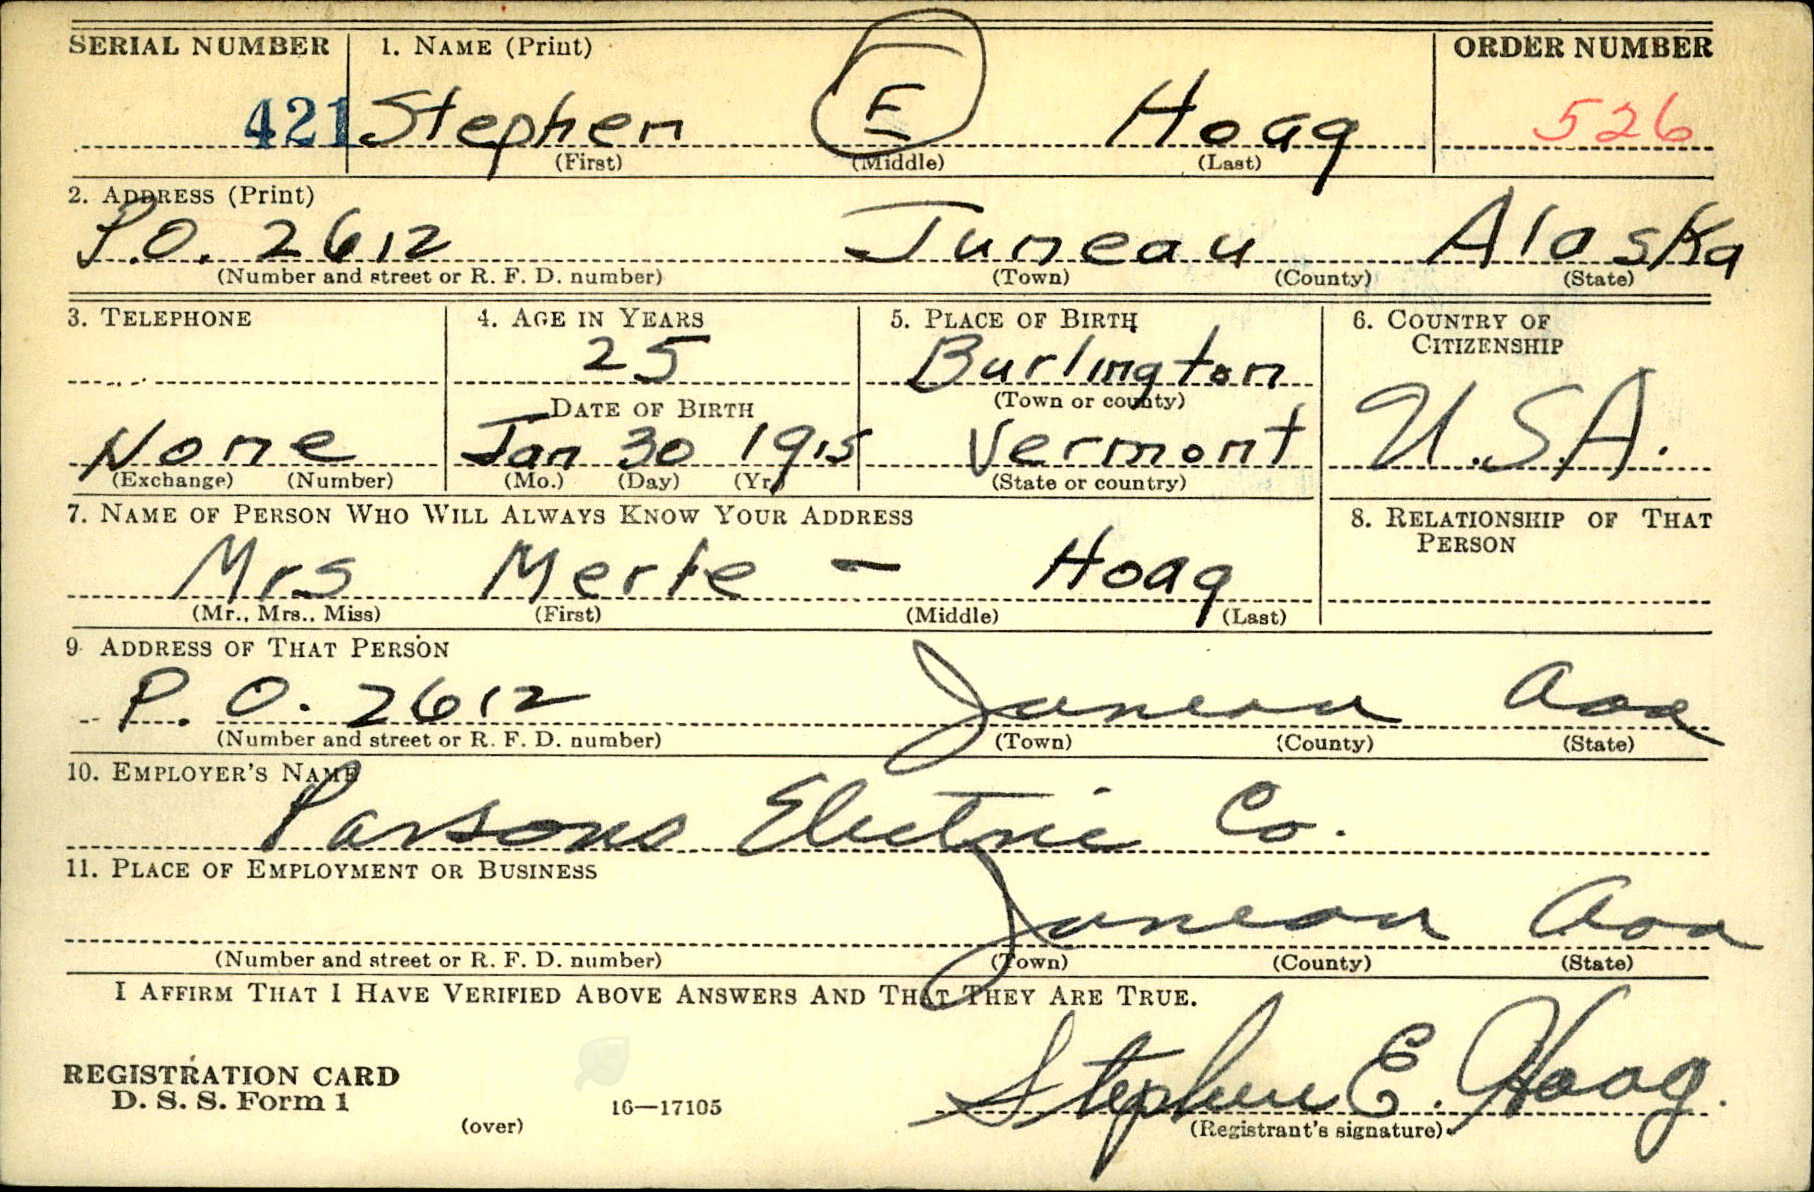 SERIAL NUMBER 1. NAME (Print) ORDER NUMBER
421 Stephen E Hoag 526
(First) (Middle) (Last)
2. ADDRESS (Print)
P.O. 2612 Juneau Alaska
(Number and street or R. F. D. number) (Town) (County) (State)
3. TELEPHONE 4. AGE IN YEARS 5. PLACE OF BIRTH 6. COUNTRY OF
CITIZENSHIP
25 Burlington
DATE OF BIRTH (Town or county)
None Jan 30 1915 Vermont U.S.A.
(Exchange) (Number) (Mo.) (Day) (Yr.) (State or country)
7. NAME OF PERSON WHO WILL ALWAYS KNOW YOUR ADDRESS 8. RELATIONSHIP OF THAT
PERSON
Mrs Merle - Hoag
(Mr., Mrs., Miss) (First) (Middle) (Last)
9. ADDRESS OF THAT PERSON
P. O. 2612 Juneau
(Number and street or R. F. D. number) (Town) (County) (State)
10. EMPLOYER'S NAME
Parsons Electric Co.
11. PLACE OF EMPLOYMENT OR BUSINESS
Juneau
(Number and street or R. F. D. number) (Town) (County) (State)
I AFFIRM THAT I HAVE VERIFIED ABOVE ANSWERS AND THAT THEY ARE TRUE.
Stephen E. Hoag.
REGISTRATION CARD
D. S. S. Form 1 16—17105
(over) (Registrant's signature)